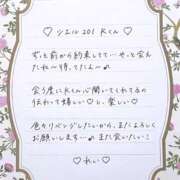 ♡ シエル 201 Kくん ♡
ずっと前から約束してて…やっと会え
たね〜待ってたよ〜♪
会う度にKくん心開いてくれてるの
伝わって嬉しい♡し、楽しい♡
色々リベンジしたいから、またよろしく
お願いします…♪また会いたい！
♡れい♡